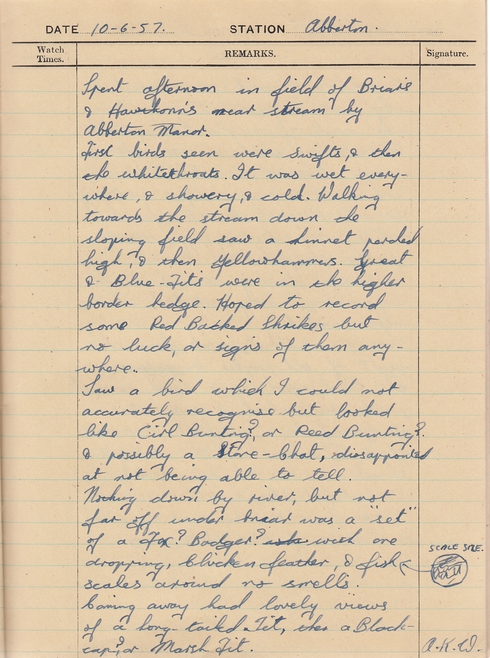 DATE 10-6-57. STATION Abberton.
Watch Times. REMARKS. Signature.
Spent afternoon in field of Briars
& Hawthorns near stream by
Abberton Manor.
First birds seen were Swifts, & then
the whitethroats. It was wet every-
where, & showery, & cold. Walking
towards the stream down the
sloping field saw a Linnet perched
high, & then Yellowhammers. Great
& Blue-Tits were in the higher
border hedge. Hoped to record
some Red Backed Shrikes but
no luck, or signs of them any-
where.
Saw a bird which I could not
accurately recognise but looked
like Cirl Bunting? or Reed Bunting?
& possibly a Stone-Chat, disappointed
at not being able to tell.
Nothing down by river, but not
far off under briar was a "set"
of a Fox? Badger? with one
dropping, Chicken feather, & fish
scales around no smells.
SCALE SIZE.
Coming away had lovely views
of a Long-tailed-Tit, then a Black-
cap? or Marsh Tit.
A.K.W.